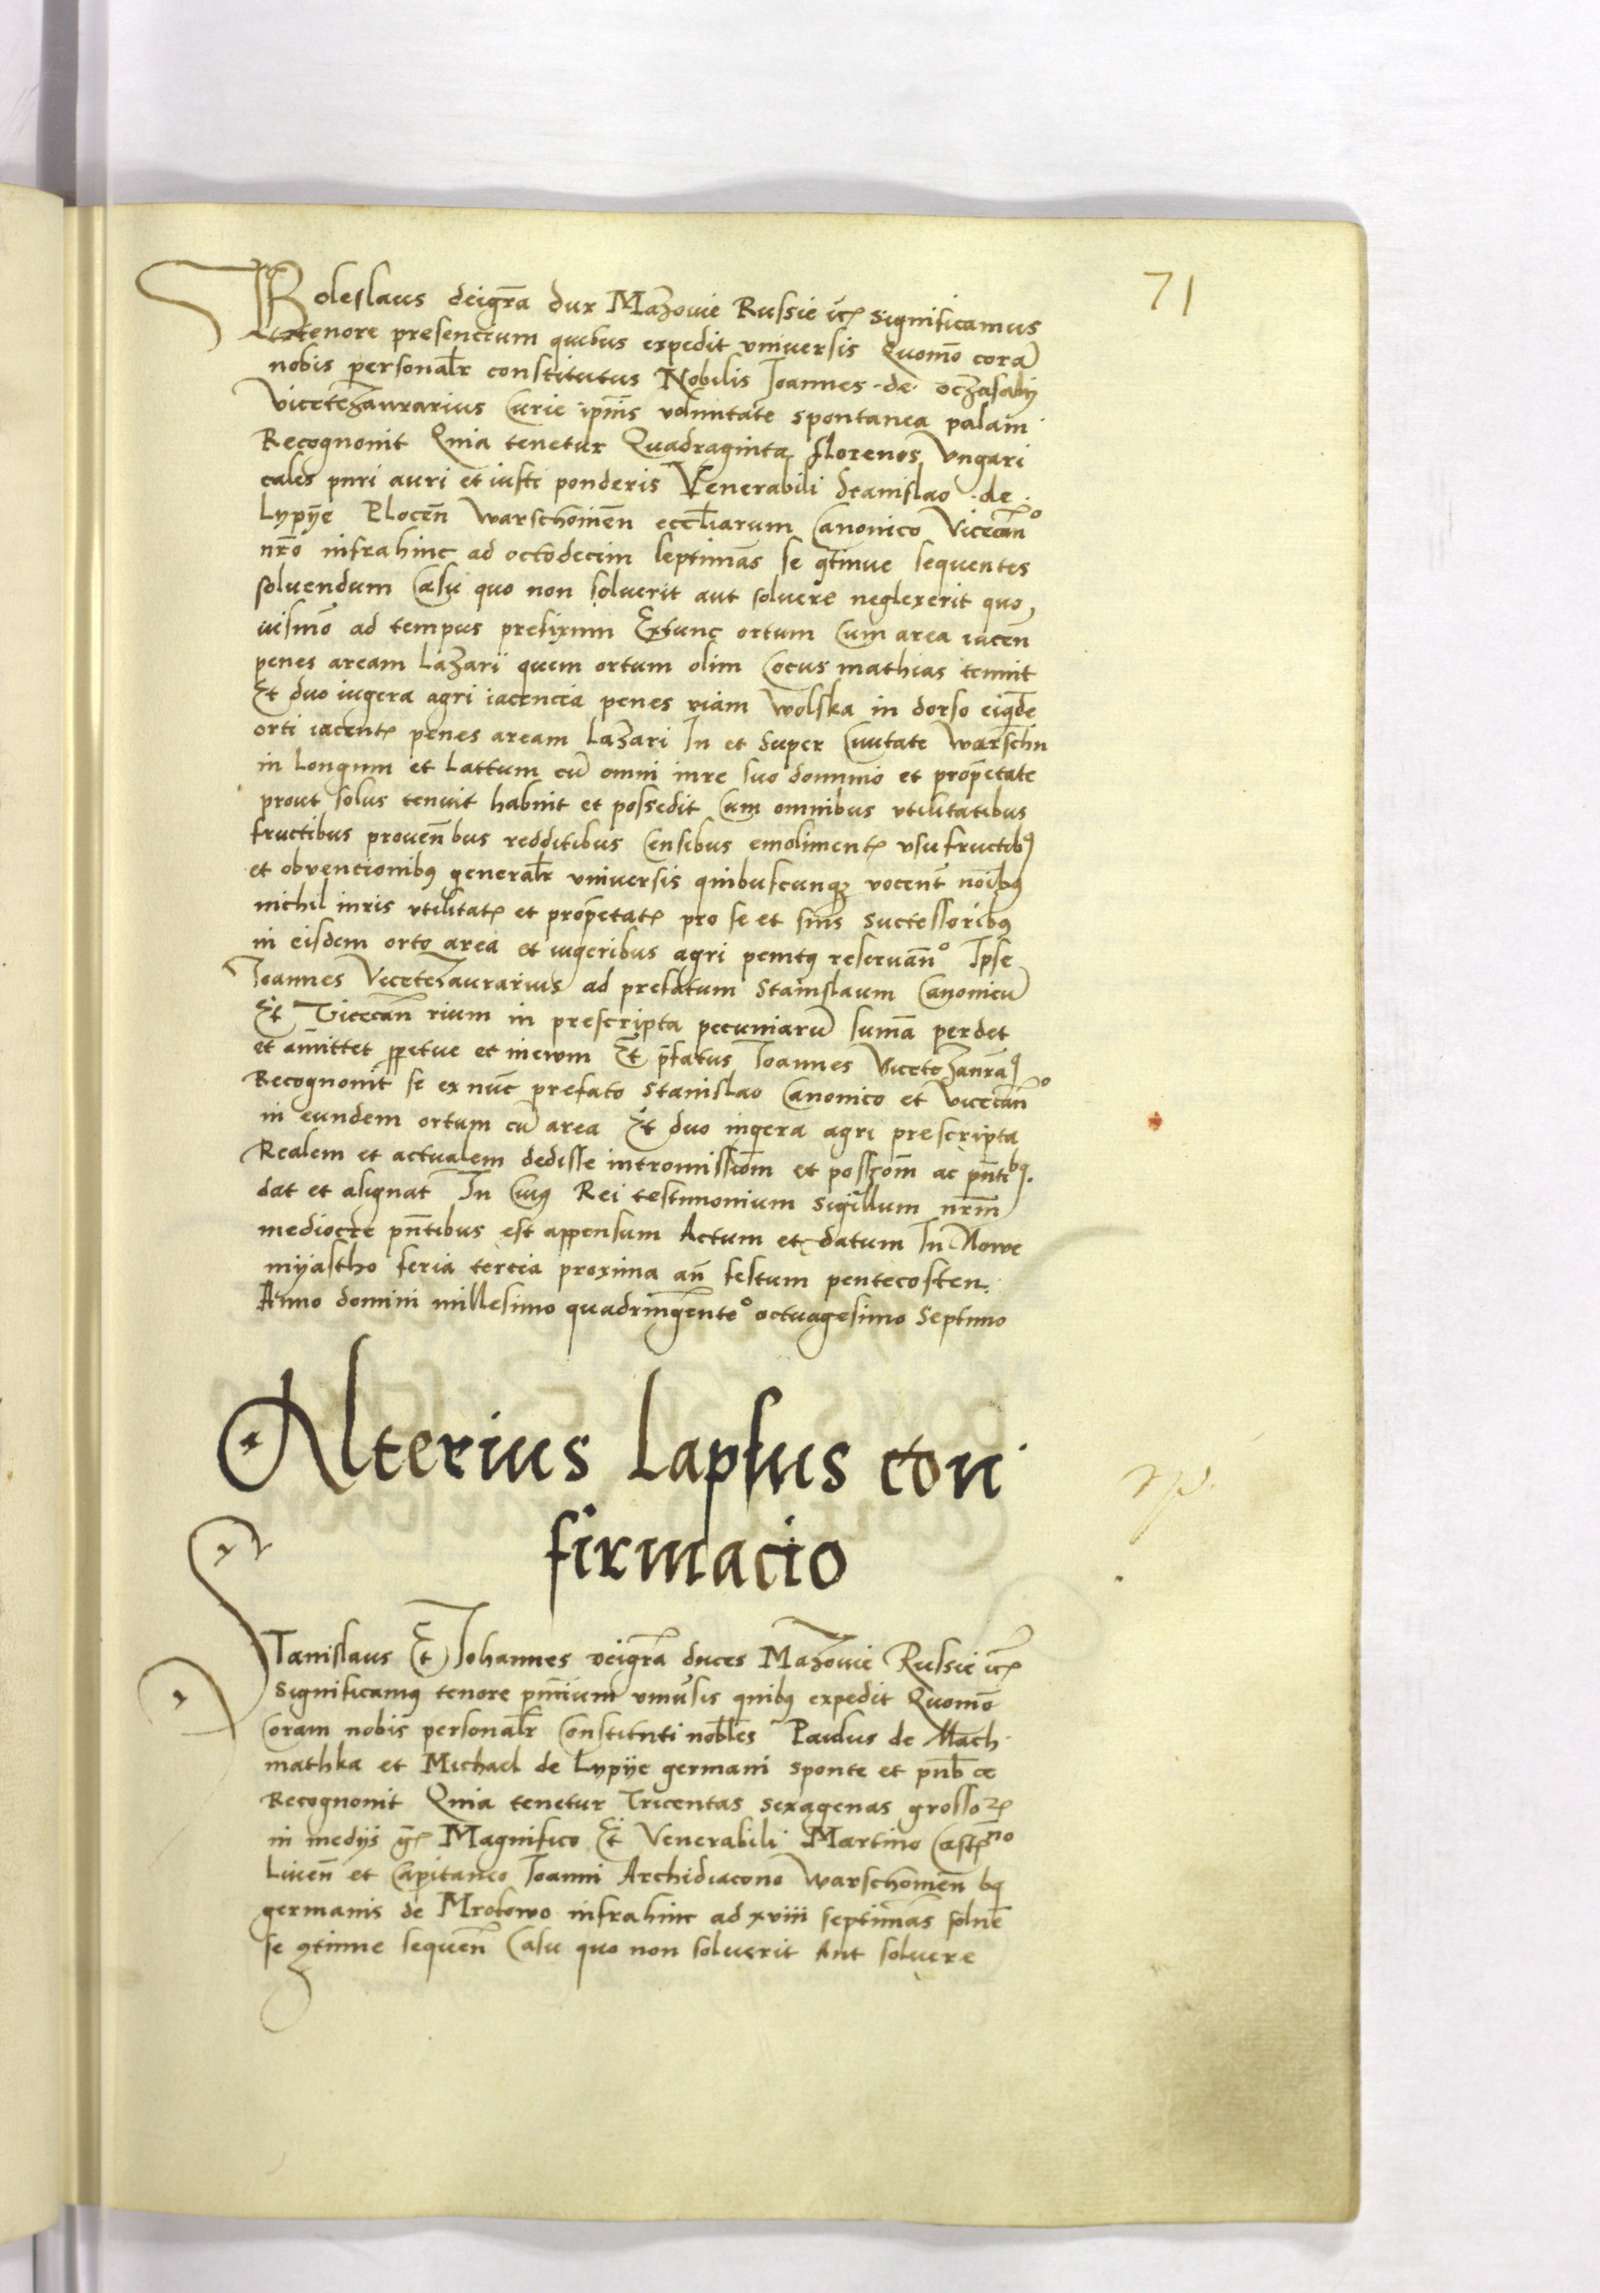 71
Boleslaus deigr̄a dux Mazouie Russie etc̃ significamus
tenore presencium quibus expedit vniuersis Quomō corā
nobis personalr̄ constitutus Nobilis Joannes de oczasaly
Vicethezaurarius Curie ip̄ius volūntate spontanea palam
Recognouit Quia tenetur Quadraginta florenos Vngari
cales puri auri et iusti ponderis Venerabili Stanislao de
Lypye Plocen̄ Warschouien̄ eccl̄iarum Canonico Vicecan̄º
nr̄o infrahinc ad octodecim septimās se ꝯtinue sequentes
soluendum Casu quo non soluerit aut soluere neglexerit quo,
uismō ad tempus prefixum Extunc ortum Cum area iacen̄
penes aream Lazarii quem ortum olim Cocus mathias tenuit
Et duo iugera agri iacencia penes viam Wolska in dorso eiusdē
orti iacentꝭ penes aream Lazari In et Super Ciuitate Warschn̄
in Longum et Lattum cū omni iure suo dominio et prop̄etate
prout solus tenuit habuit et possedit Cum omnibus vtilitatibus
fructibus prouen̄bus redditibus Censibus emolimentꝭ vsufructibꝫ
et obvencionibꝫ generalr̄ vniuersis quibuscunqꝫ vocent̄ noīibꝫ
nichil iuris vtilitatꝭ et prop̄etatꝭ pro se et suis successoribꝫ
in eisdem orto area et iugeribus agri penitꝫ reseruan̄º Ipse
Joannes Vicethezaurarius ad prefatum Stanislaum Canonicū
Et Vicecan̄rium in prescripta pecuniarū sumā perdet
et amittet ꝑpetue et in ewm Et p̄fatus Joannes Vicethezaurāꝫ
Recognouit se ex nūc prefato Stanislao Canonico et Vicecan̄º
in eundem ortum cū area Et duo iugera agri prescripta
Realem et actualem dedisse intromissiōm et possꝫom̄ ac p̄ntibꝫ
dat et asignat In Cuiꝫ Rei testimonium sigillum nr̄m
mediocre p̄ntibus est appensum Actum et datum In Nowe
myastho feria tercia proxima an̄ festum pentecosten
Anno domini millesimo quadringentº octuagesimo Septimo
Alterius Lapsus con
firmacio
Stanislaus Et Johannes deigr̄a duces Mazouie Russie etc̃
Significamꝫ tenore p̄ncium vniu̓sis quibꝫ expedit Quomō
Coram nobis personalr̄ Constituti nobl̄es Paulus de Mach
mathka et Michael de Lypye germani sponte et pub̄ce
Recognouit Quia tenetur Tricentas sexagenas grossoꝝ
in medys gꝭ Magnifico Et Venerabili Martino Castꝭno
Liuen̄ et Capitaneo Joanni Archidiacono Warschouien̄ bꝫ
germanis de Mrokowo infrahinc ad xviii septimās solue̅
se ꝯtinue sequen̄ Casu quo non soluerit Aut soluere